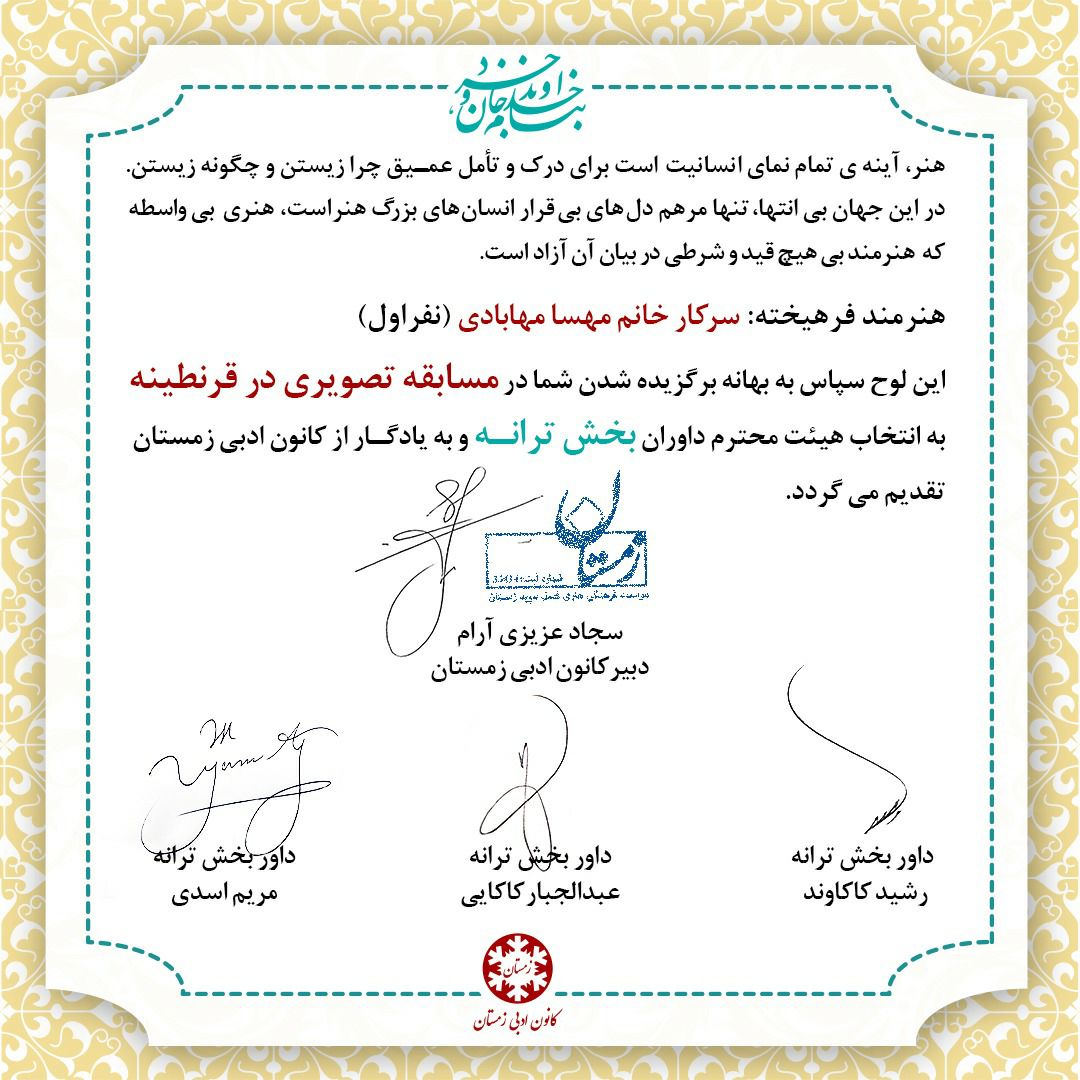 بنام خداوند جان و خرد
هنر، آینه ی تمام نمای انسانیت است برای درک و تأمل عمـیق چرا زیستن و چگونه زیستن.
در این جهان بی انتها، تنها مرهم دل‌های بی قرار انسان‌های بزرگ هنر است، هنری بی واسطه
که هنرمند بی هیچ قید و شرطی در بیان آن آزاد است.
هنرمند فرهیخته: سرکار خانم مهسا مهابادی (نفراول)
این لوح سپاس به بهانه برگزیده شدن شما در مسابقه تصویری در قرنطینه
به انتخاب هیئت محترم داوران بخش ترانـه و به یادگـار از کانون ادبی زمستان
تقدیم می گردد.
زمستان
شماره ثبت:
موسسه فرهنگی هنری
زمستان
سجاد عزیزی آرام
دبیر کانون ادبی زمستان
داور بخش ترانه
رشید کاکاوند
داور بخش ترانه
عبدالجبار کاکایی
داور بخش ترانه
مریم اسدی
زمستان
کانون ادبی زمستان